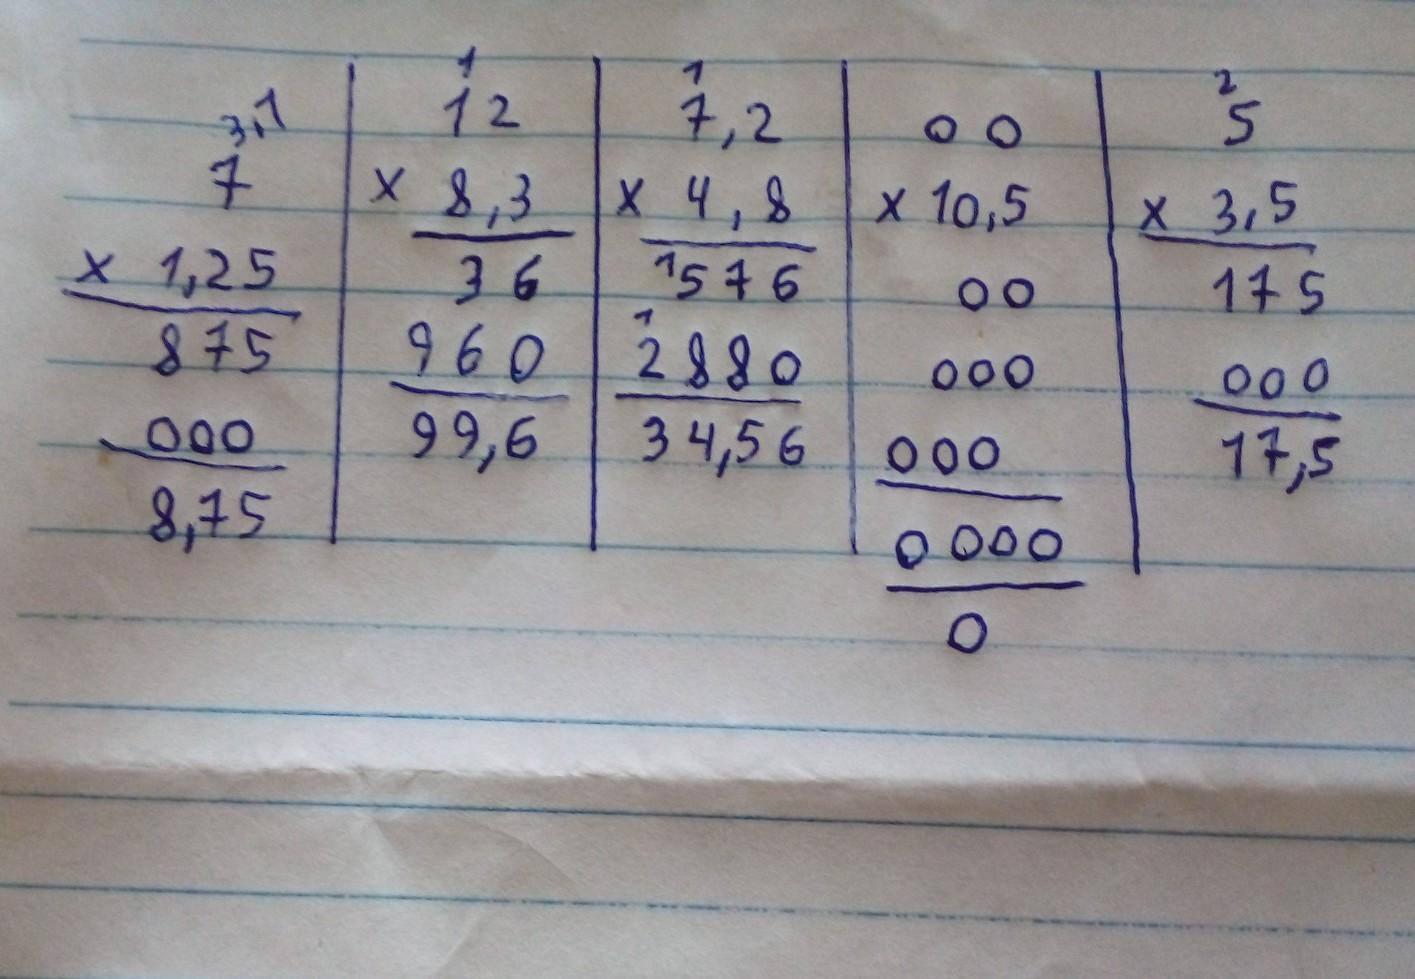 3,1
7
x 1,25
875
000
8,75
1
12
x 8,3
36
960
99,6
1
7,2
x 4,8
1576
1
2880
34,56
00
x 10,5
00
000
000
0000
0
2
5
x 3,5
175
000
17,5